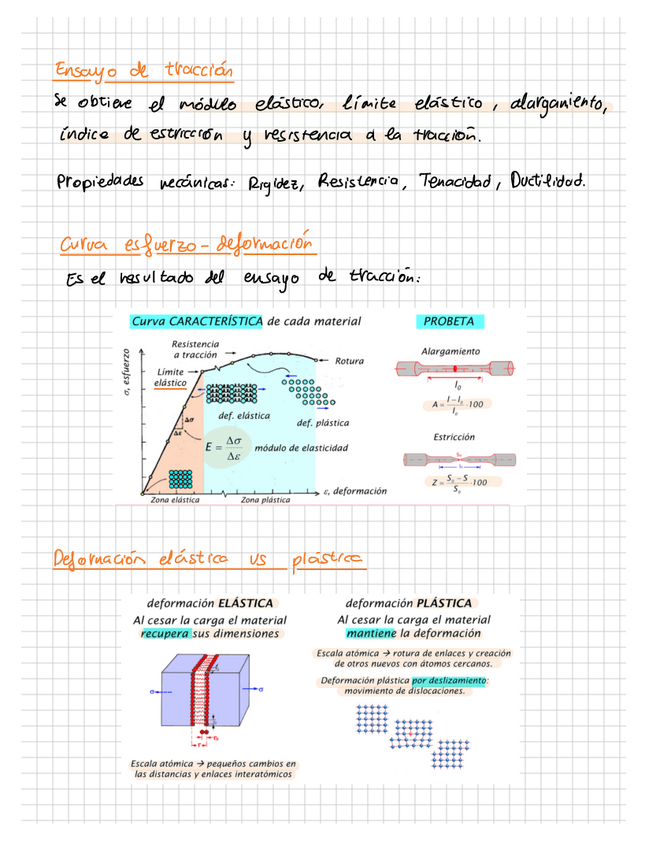 Ensayo de tracción
Se obtiene el módulo elástico, límite elástico, alargamiento,
índice de estricción y resistencia a la tracción.
Propiedades mecánicas: Rigidez, Resistencia, Tenacidad, Ductilidad.
Curva esfuerzo-deformación
Es el resultado del ensayo de tracción:
Curva CARACTERÍSTICA de cada material
PROBETA
σ, esfuerzo
Resistencia
a tracción
Rotura
Límite
elástico
def. elástica
def. plástica
Δσ
Δε
E = Δσ / Δε
módulo de elasticidad
ε, deformación
Zona elástica
Zona plástica
Alargamiento
l₀
A = (l - l₀) / l₀ · 100
Estricción
Z = (S₀ - S) / S₀ · 100
Deformación elástica vs plástica
deformación ELÁSTICA
Al cesar la carga el material
recupera sus dimensiones
σ
σ
r
r₀
Escala atómica → pequeños cambios en
las distancias y enlaces interatómicos
deformación PLÁSTICA
Al cesar la carga el material
mantiene la deformación
Escala atómica → rotura de enlaces y creación
de otros nuevos con átomos cercanos.
Deformación plástica por deslizamiento:
movimiento de dislocaciones.